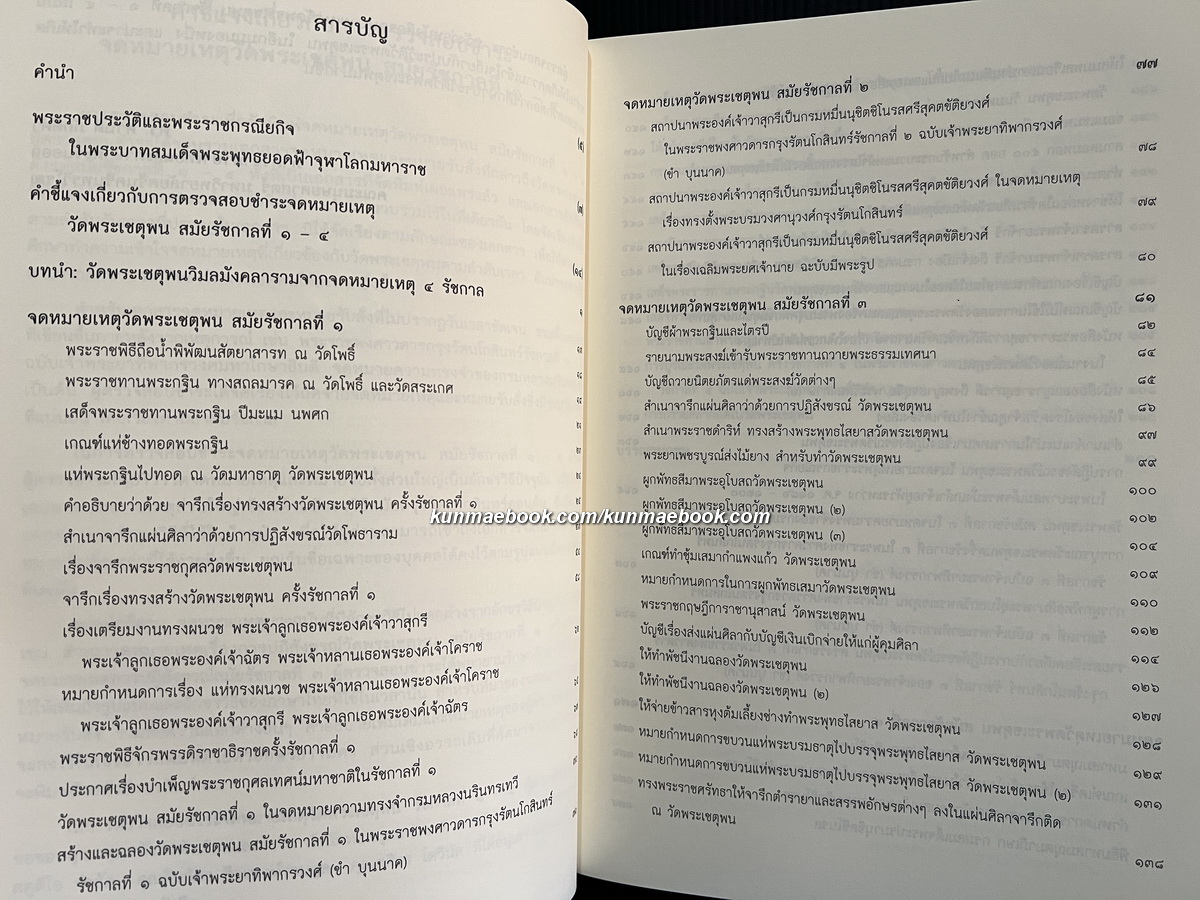 สารบัญ
คำนำ
พระราชประวัติและพระราชกรณียกิจ
ในพระบาทสมเด็จพระพุทธยอดฟ้าจุฬาโลกมหาราช
คำชี้แจงเกี่ยวกับการตรวจสอบชำระจดหมายเหตุ
วัดพระเชตุพน สมัยรัชกาลที่ ๑ – ๔
บทนำ: วัดพระเชตุพนวิมลมังคลารามจากจดหมายเหตุ ๔ รัชกาล
จดหมายเหตุวัดพระเชตุพน สมัยรัชกาลที่ ๑
พระราชพิธีถือน้ำพิพัฒนสัตยาสารท ณ วัดโพธิ์
พระราชทานพระกฐิน ทางสถลมารค ณ วัดโพธิ์ และวัดสระเกศ
เสด็จพระราชทานพระกฐิน ปีมะแม นพศก
เกณฑ์แห่ช้างทอดพระกฐิน
แห่พระกฐินไปทอด ณ วัดมหาธาตุ วัดพระเชตุพน
คำอธิบายว่าด้วย จารึกเรื่องทรงสร้างวัดพระเชตุพน ครั้งรัชกาลที่ ๑
สำเนาจารึกแผ่นศิลาว่าด้วยการปฏิสังขรณ์วัดโพธาราม
เรื่องจารึกพระราชกุศลวัดพระเชตุพน
จารึกเรื่องทรงสร้างวัดพระเชตุพน ครั้งรัชกาลที่ ๑
เรื่องเตรียมงานทรงผนวช พระเจ้าลูกเธอพระองค์เจ้าวาสุกรี
พระเจ้าลูกเธอพระองค์เจ้าฉัตร พระเจ้าหลานเธอพระองค์เจ้าโคราช
หมายกำหนดการเรื่อง แห่ทรงผนวช พระเจ้าหลานเธอพระองค์เจ้าโคราช
พระเจ้าลูกเธอพระองค์เจ้าวาสุกรี พระเจ้าลูกเธอพระองค์เจ้าฉัตร
พระราชพิธีจักรพรรดิราชาธิราชครั้งรัชกาลที่ ๑
ประกาศเรื่องบำเพ็ญพระราชกุศลเทศน์มหาชาติในรัชกาลที่ ๑
วัดพระเชตุพน สมัยรัชกาลที่ ๑ ในจดหมายความทรงจำกรมหลวงนรินทรเทวี
สร้างและฉลองวัดพระเชตุพน สมัยรัชกาลที่ ๑ ในพระราชพงศาวดารกรุงรัตนโกสินทร์
รัชกาลที่ ๑ ฉบับเจ้าพระยาทิพากรวงศ์ (ขำ บุนนาค)
จดหมายเหตุวัดพระเชตุพน สมัยรัชกาลที่ ๒ ๗๗
สถาปนาพระองค์เจ้าวาสุกรีเป็นกรมหมื่นนุชิตชิโนรสศรีสุคตขัติยวงศ์
ในพระราชพงศาวดารกรุงรัตนโกสินทร์รัชกาลที่ ๒ ฉบับเจ้าพระยาทิพากรวงศ์
(ขำ บุนนาค) ๗๘
สถาปนาพระองค์เจ้าวาสุกรีเป็นกรมหมื่นนุชิตชิโนรสศรีสุคตขัติยวงศ์ ในจดหมายเหตุ
เรื่องทรงตั้งพระบรมวงศานุวงศ์กรุงรัตนโกสินทร์ ๗๙
สถาปนาพระองค์เจ้าวาสุกรีเป็นกรมหมื่นนุชิตชิโนรสศรีสุคตขัติยวงศ์
ในเรื่องเฉลิมพระยศเจ้านาย ฉะบับมีพระรูป ๘๐
จดหมายเหตุวัดพระเชตุพน สมัยรัชกาลที่ ๓ ๘๑
บัญชีผ้าพระกฐินและไตรปี ๘๒
รายนามพระสงฆ์เข้ารับพระราชทานถวายพระธรรมเทศนา ๘๔
บัญชีถวายนิตยภัตรแด่พระสงฆ์วัดต่างๆ ๘๕
สำเนาจารึกแผ่นศิลาว่าด้วยการปฏิสังขรณ์ วัดพระเชตุพน ๘๖
สำเนาพระราชดำริห์ ทรงสร้างพระพุทธไสยาสวัดพระเชตุพน ๙๗
พระยาเพชรบูรณ์ส่งไม้ยาง สำหรับทำวัดพระเชตุพน ๙๙
ผูกพัทธสีมาพระอุโบสถวัดพระเชตุพน ๑๐๐
ผูกพัทธสีมาพระอุโบสถวัดพระเชตุพน (๒) ๑๐๒
ผูกพัทธสีมาพระอุโบสถวัดพระเชตุพน (๓) ๑๐๔
เกณฑ์ทำซุ้มเสมากำแพงแก้ว วัดพระเชตุพน ๑๐๙
หมายกำหนดการในการผูกพัทธเสมาวัดพระเชตุพน ๑๑๐
พระราชกฤษฎีการาชานุสาสน์ วัดพระเชตุพน ๑๑๒
บัญชีเรื่องส่งแผ่นศิลากับบัญชีเงินเบิกจ่ายให้แก่ผู้คุมศิลา ๑๑๔
ให้ทำพัชนีงานฉลองวัดพระเชตุพน ๑๒๖
ให้ทำพัชนีงานฉลองวัดพระเชตุพน (๒) ๑๒๗
ให้จ่ายข้าวสารหุงต้มเลี้ยงช่างทำพระพุทธไสยาส วัดพระเชตุพน ๑๒๘
หมายกำหนดการขบวนแห่พระบรมธาตุไปบรรจุพระพุทธไสยาส วัดพระเชตุพน ๑๒๙
หมายกำหนดการขบวนแห่พระบรมธาตุไปบรรจุพระพุทธไสยาส วัดพระเชตุพน (๒) ๑๓๑
ทรงพระราชศรัทธาให้จารึกตำรายาและสรรพอักษรต่างๆ ลงในแผ่นศิลาจารึกติด
ณ วัดพระเชตุพน ๑๓๘
kunmaebook.com/kunmaebook.com